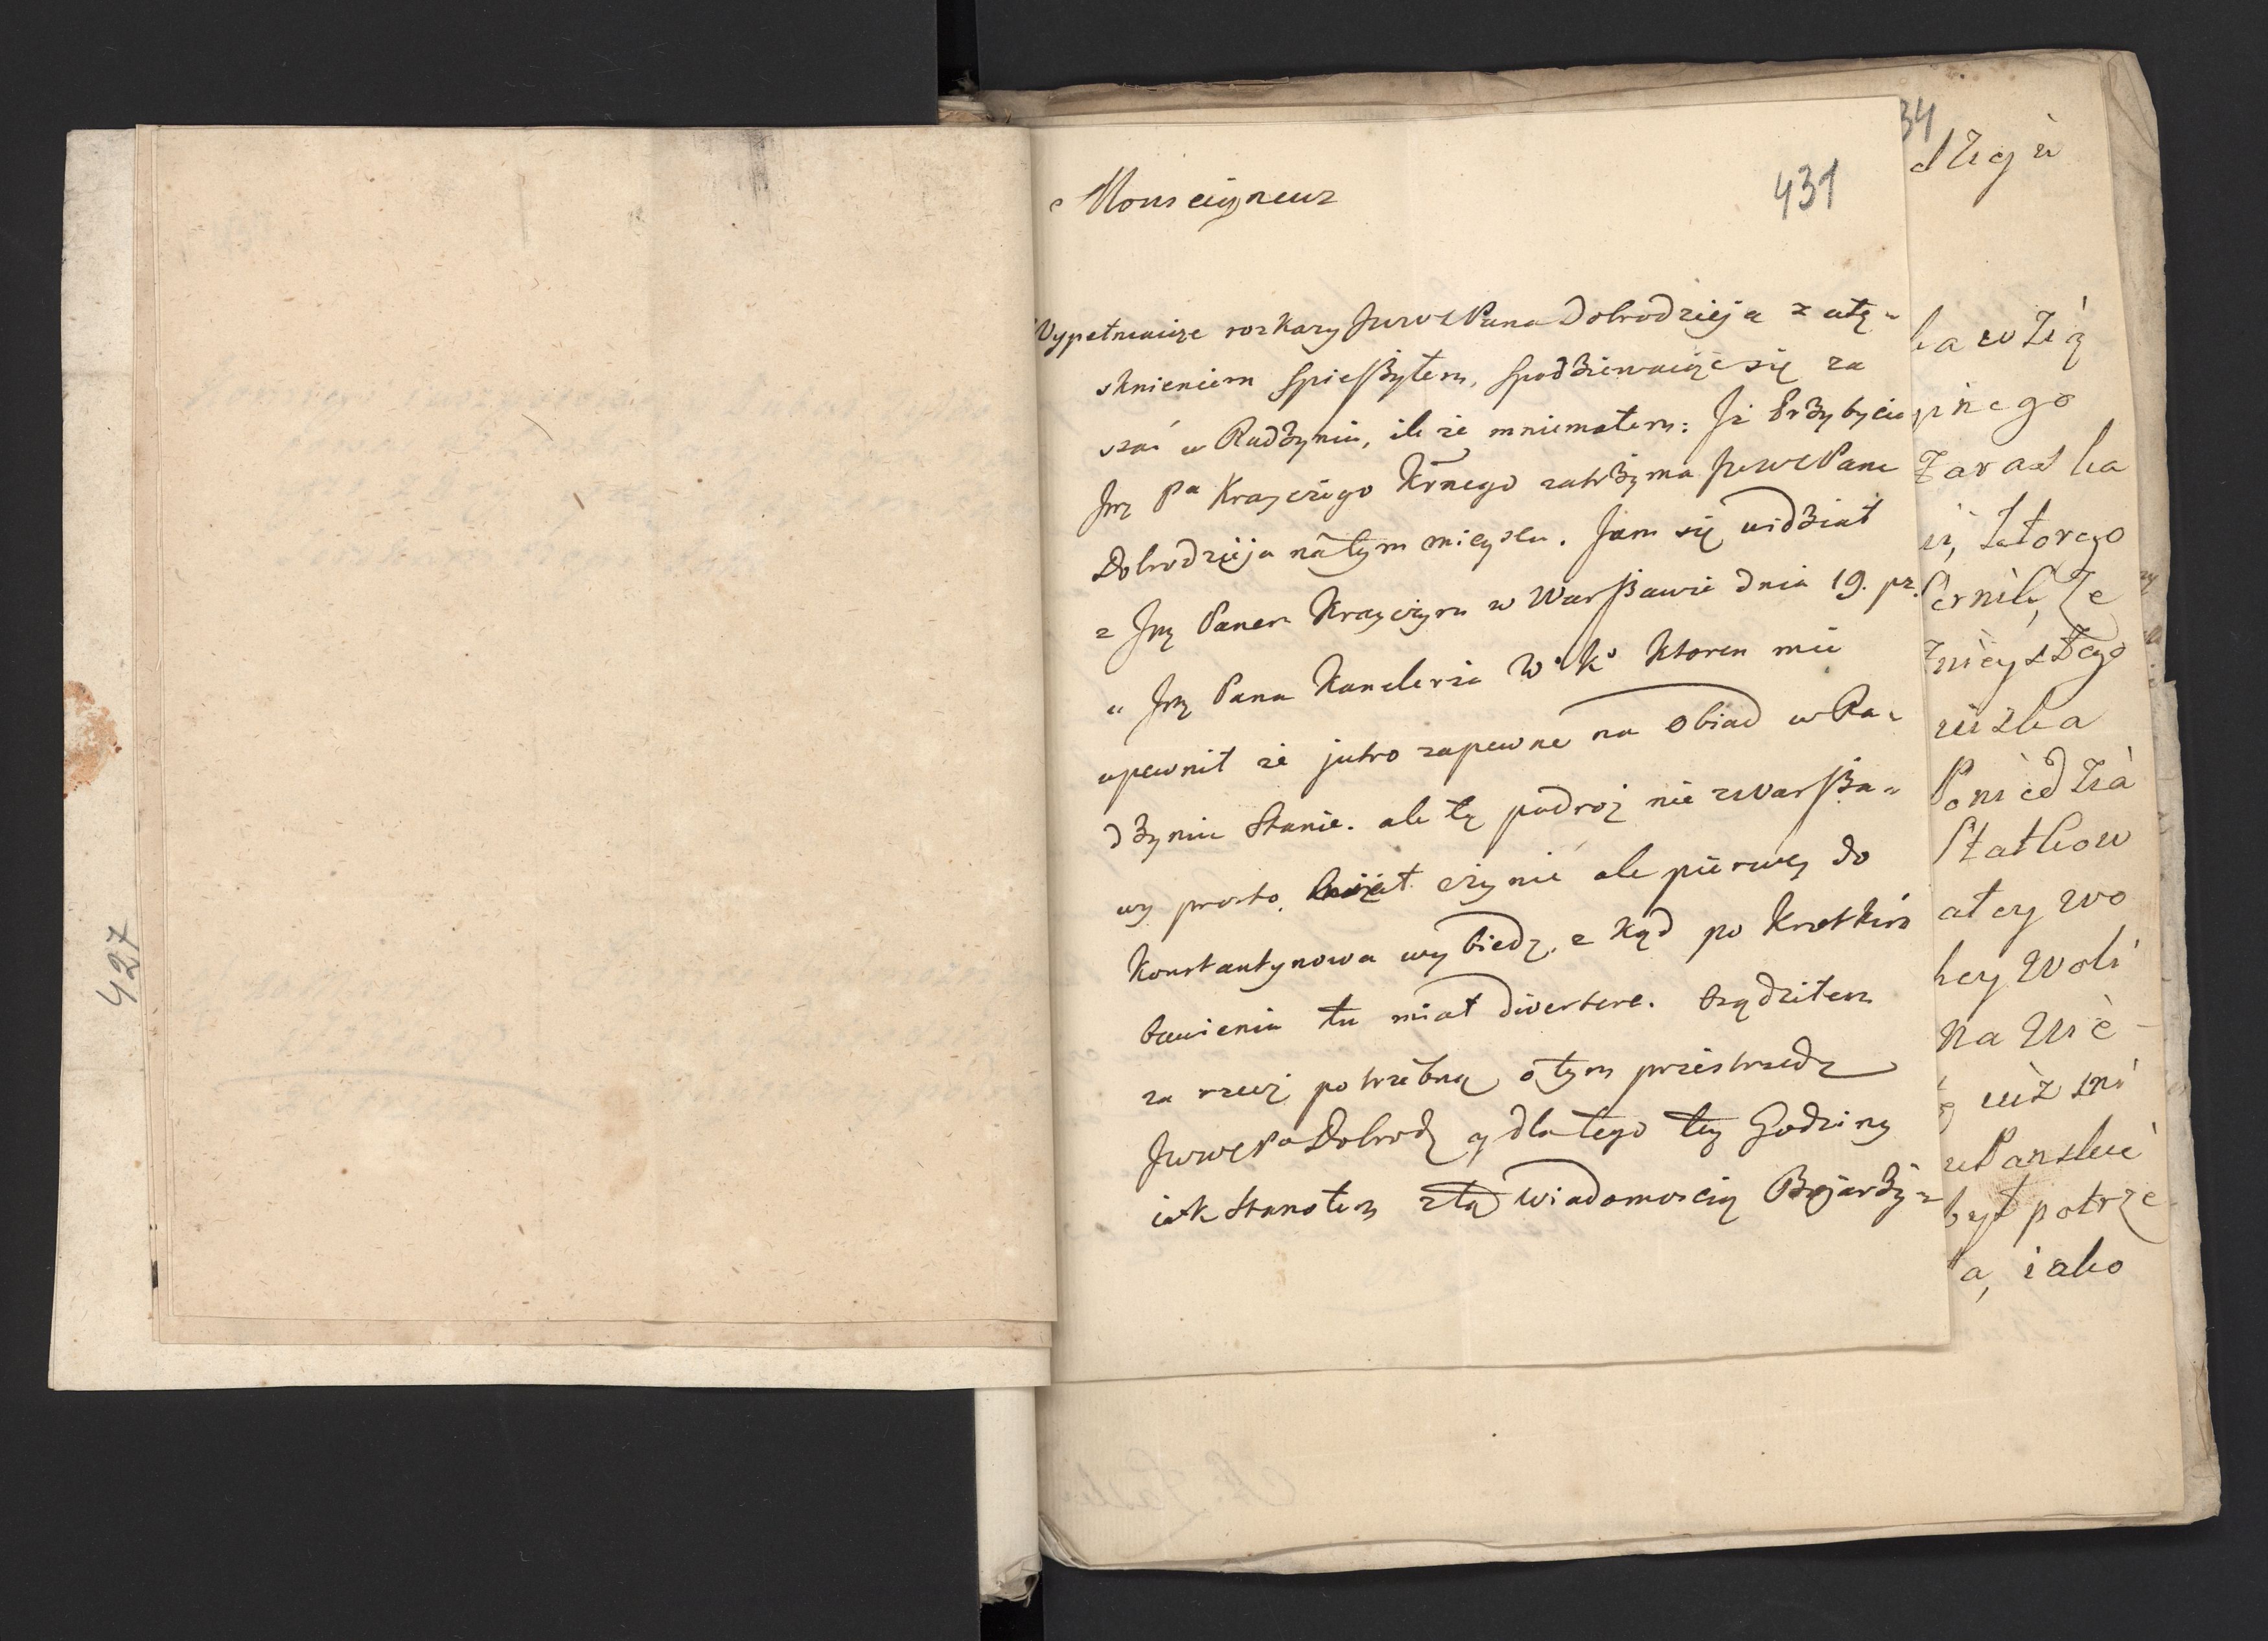 427
431
Monseigneur
Wypełniaiąc roskazy JwwcPana Dobrodzieja z utę-
sknieniem spieszyłem, spodziewaiąc się za
stać w Radzyniu, ile że mniemałem: Iż Przybycie
Jmć Pa Krayczego Krnego zatrzyma JwwcPana
Dobrodzieja na tym mieyscu. Jam się widział
z Jmć Panem Krayczym w Warszawie dnia 19. pr.
u Jmć Pana Kanclerza W. K. Ktoren mie
upewnił że jutro zapewne na obiad w Ra-
dzyniu stanie. ale tę podroż nie z Warsza-
wy prosto czynie ale pierwey do
Konstantynowa wybiedz, z kąd po krotkim
bawieniu tu miał divertere. Osądziłem
za rzecz potrzebną o tym przestrzedz
JwwcPa Dobrodz y dla tego tey Godziny
iak stanołem z tą wiadomoscią
34
dziey u
ba w Zią
pnego
Zaras ka
ktorego
ernik, Ze
znieyszego
niska
Poniedzia
statkow
atey wo
key Woli
na Wie-
niz zni
u Panskie
byt potrze
a, iako